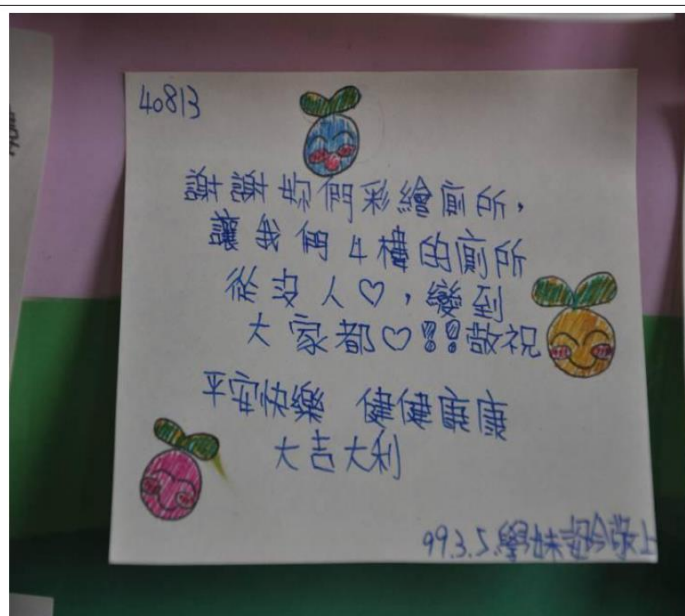 40813
謝謝妳們彩繪廁所，
讓我們4樓的廁所
從沒人♡，變到
大家都♡!!敬祝
平安快樂 健健康康
大吉大利
99.3.5.學妹 敬上